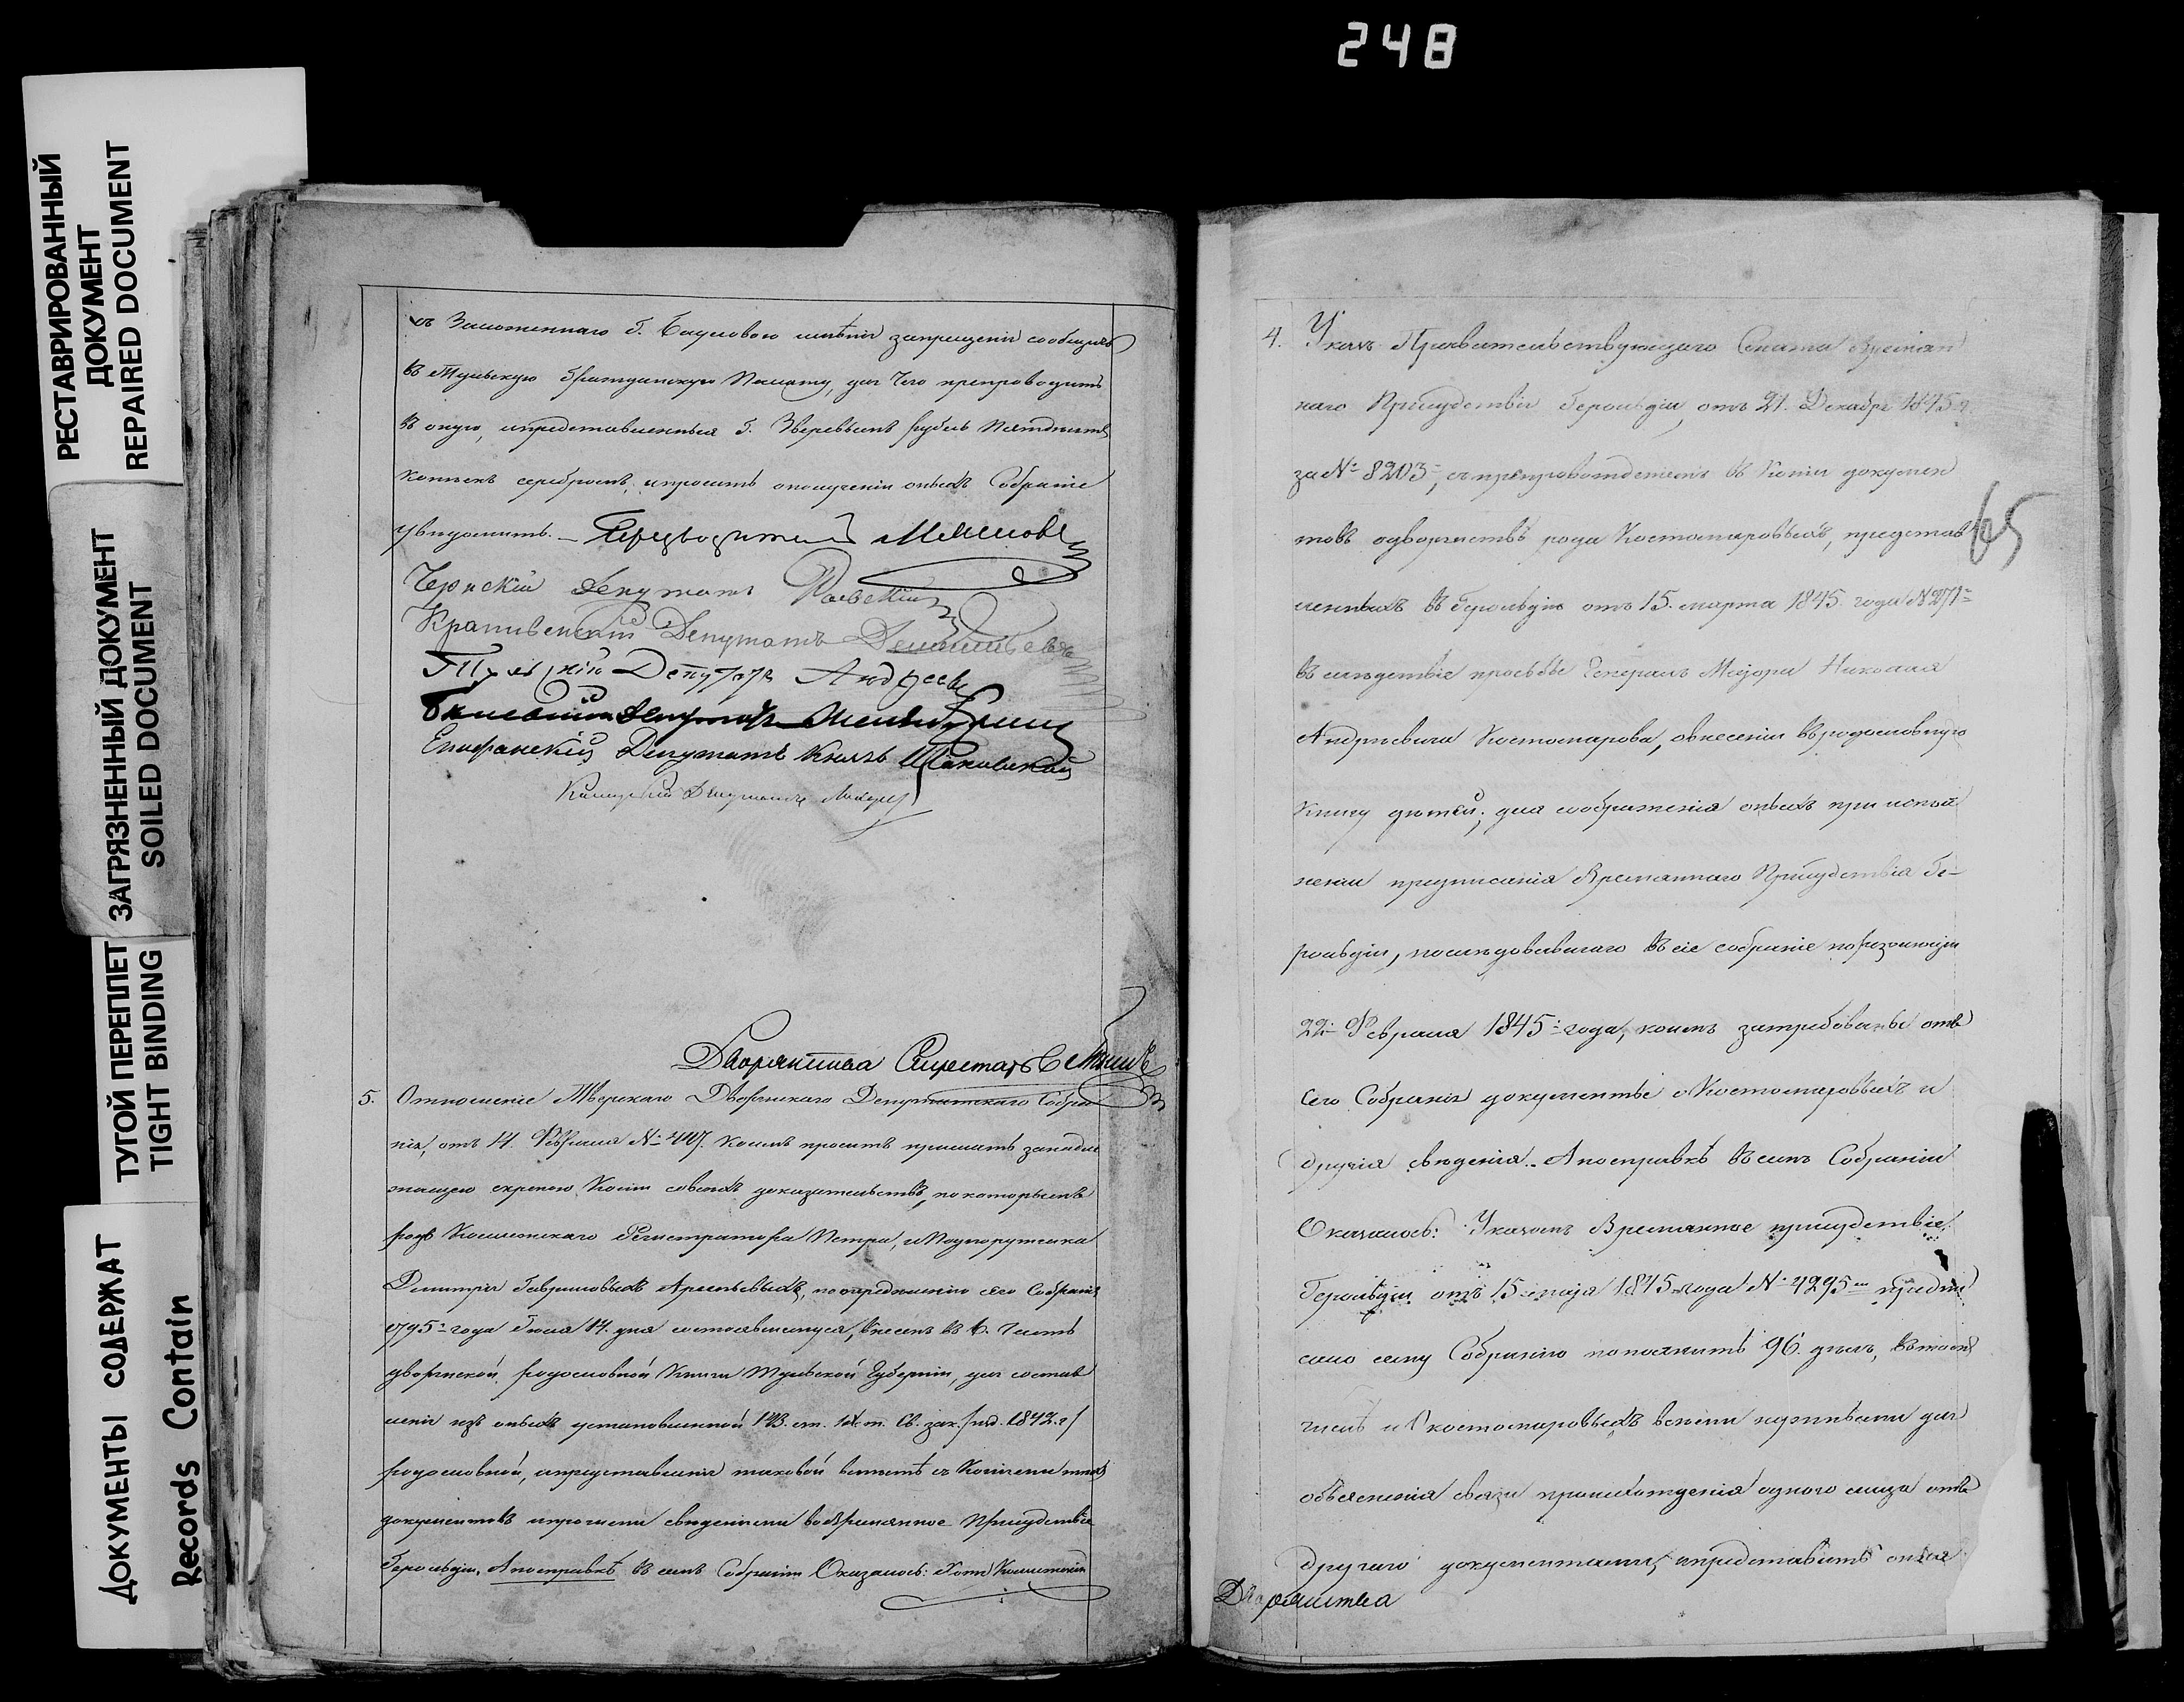 248
РЕСТАВРИРОВАННЫЙ
ДОКУМЕНТ
REPAIRED DOCUMENT
ЗАГРЯЗНЕННЫЙ ДОКУМЕНТ
SOILED DOCUMENT
ТУГОЙ ПЕРЕПЛЕТ
TIGHT BINDING
ДОКУМЕНТЫ СОДЕРЖАТ
Records Contain
съ Заложеннаго Г. имѣнія запрещенія сообщить
въ Тульскую Гражданскую Палату, для чего препроводить
въ оную, и представленныя Г. Зверевымъ рубль пятдесятъ
копѣекъ серебромъ, и просить о полученіи оныхъ Собраніе
увѣдомить. — Предводитель
Чернскій Депутатъ Раевскій
Крапивенскій Депутатъ
Тульскій Депутатъ Андреевъ
Депутатъ
Епифанскій Депутатъ Князь
Каширскій Депутатъ
Дворянства Секретарь
5. Отношеніе Тверскаго Дворянскаго Депутатскаго Собра
нія, отъ 14. Февраля № коимъ проситъ прислать за надле
жащею скрепою Копіи со всѣхъ доказательствъ, по которымъ
родъ Коллежскаго Регистратора Петра, и Подпорутчика
Димитрія Гавриловыхъ Арсеньевыхъ, по опредѣленію сего Собранія
1795 года Іюля 14. дня состоявшемуся, внесенъ въ 6. Часть
дворянской родословной Книги Тульской Губерніи, для состав
ленія изъ оныхъ установленной ст. т. Св. зак. /изд. 1842. г/
родословной, и представленія таковой вмѣстѣ съ Копіями тѣхъ
документовъ и прочими свѣденіями во Временное Присудствіе
Герольдіи. А по справкѣ въ семъ Собраніи Оказалось: Хотя Коллежскій
4. Указъ Правительствующаго Сената Времян
наго Присудствія Герольдіи, отъ 21. Декабря 1845 г.
за № 8203, съ препровожденіемъ въ Копіи докумен
товъ о дворянствѣ рода Костомаровыхъ, представ
65
ленныхъ въ Герольдію отъ 15. марта 1845. года № 271
въ слѣдствіе прозьбы Генералъ Маіора Николая
Андреевича Костомарова, о внесеніи въ родословную
Книгу дѣтей; для соображенія оныхъ при испол
неніи предписанія Времяннаго Присудствія Ге-
рольдіи, послѣдовавшаго въ сіе собраніе по резолюціи
22 Февраля 1845 года, коимъ затребованы отъ
сего Собранія документы о Костомаровыхъ и
другія свѣденія. А по справкѣ въ семъ Собраніи
Оказалось: Указомъ Времянное присудствіе
Герольдіи отъ 15 маія 1845 года № 4295 предпи
сало сему Собранію пополнить 96. дѣлъ, въ томъ
числѣ и О костомаровыхъ всѣми нужными для
объясненія связи происхожденія одного лица отъ
другаго документами, и представить оныя
Дворянства